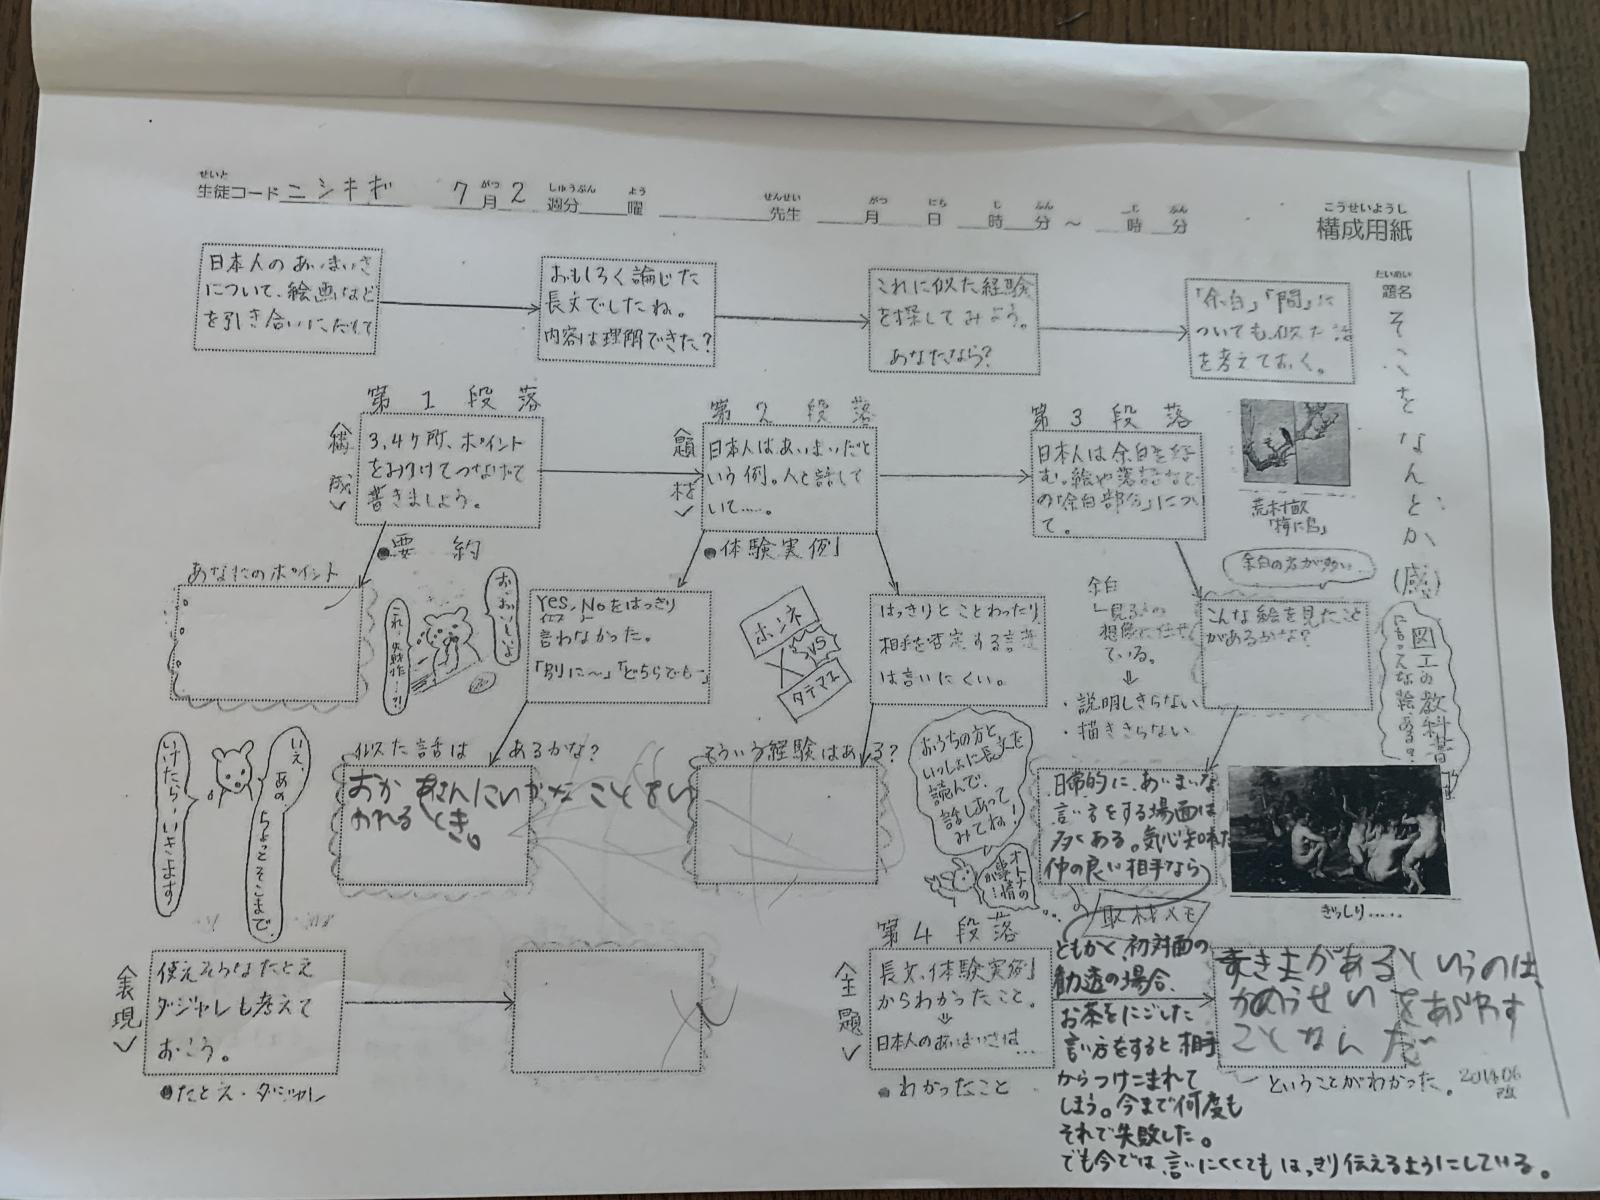 せいと
生徒コード ニシキギ 7月2週分 曜 先生 月 日 時 分 ～ 時 分
がつ しゅうぶん よう せんせい がつ にち じ ふん じ ふん
こうせいようし
構成用紙
だいめい
題名 そこをなんとか(感)
日本人のあいまいさ
について、絵画など
を引き合いにだして
おもしろく論じた
長文でしたね。
内容は理解できた?
これに似た経験
を探してみよう。
あなたなら?
「余白」「間」に
ついても似た話
を考えておく。
第1段落
<構成>
3,4ヶ所、ポイント
をみつけてつなげて
書きましょう。
●要約
第2段落
<題材>
日本人はあいまいだと
いう例。人と話して
いて……。
●体験実例
第3段落
日本人は余白を好
む。絵や落語などで
の「余白部分」につい
て。
「梅に鳥」
余白の方が多い
あなたのポイント
お、おいしいよ
これ、失敗作…?!
Yes,Noをはっきり
言わなかった。
「別に〜」「どちらでも…」
ホンネ
VS
タテマエ
はっきりとことわったり
相手を否定する言葉
は言いにくい。
余白
見る人の
想像に任せ
ている。
・説明しきらない
・描ききらない
こんな絵を見たこと
があるかな?
図工の教科書
にもこんな絵ある?
いえ、あの、ちょっとそこまで、
いけたら、いきます
似た話は あるかな?
おかあさんにいやなことをい
われるとき。
そういう経験はある?
おうちの方と
いっしょに長文を
読んで、
話しあって
みてね!
オトナの
事情
が…!
日常的に、あいまいな
言い方をする場面は
多くある。気心知れた
仲の良い相手なら
ぎっしり……
取材メモ
ともかく、初対面の
勧誘の場合、
お茶をにごした
言い方をすると相手
からつけこまれて
しまう。今まで何度も
それで失敗した。
でも今では、言いにくくてもはっきり伝えるようにしている。
<表現>
使えそうなたとえ
ダジャレも考えて
おこう。
●たとえ・ダジャレ
第4段落
<主題>
長文、体験実例
からわかったこと。
⇓
日本人のあいまいさは…
●わかったこと
すきまがあるというのは、
かのうせいをあらわす
ことなんだ
ということがわかった。